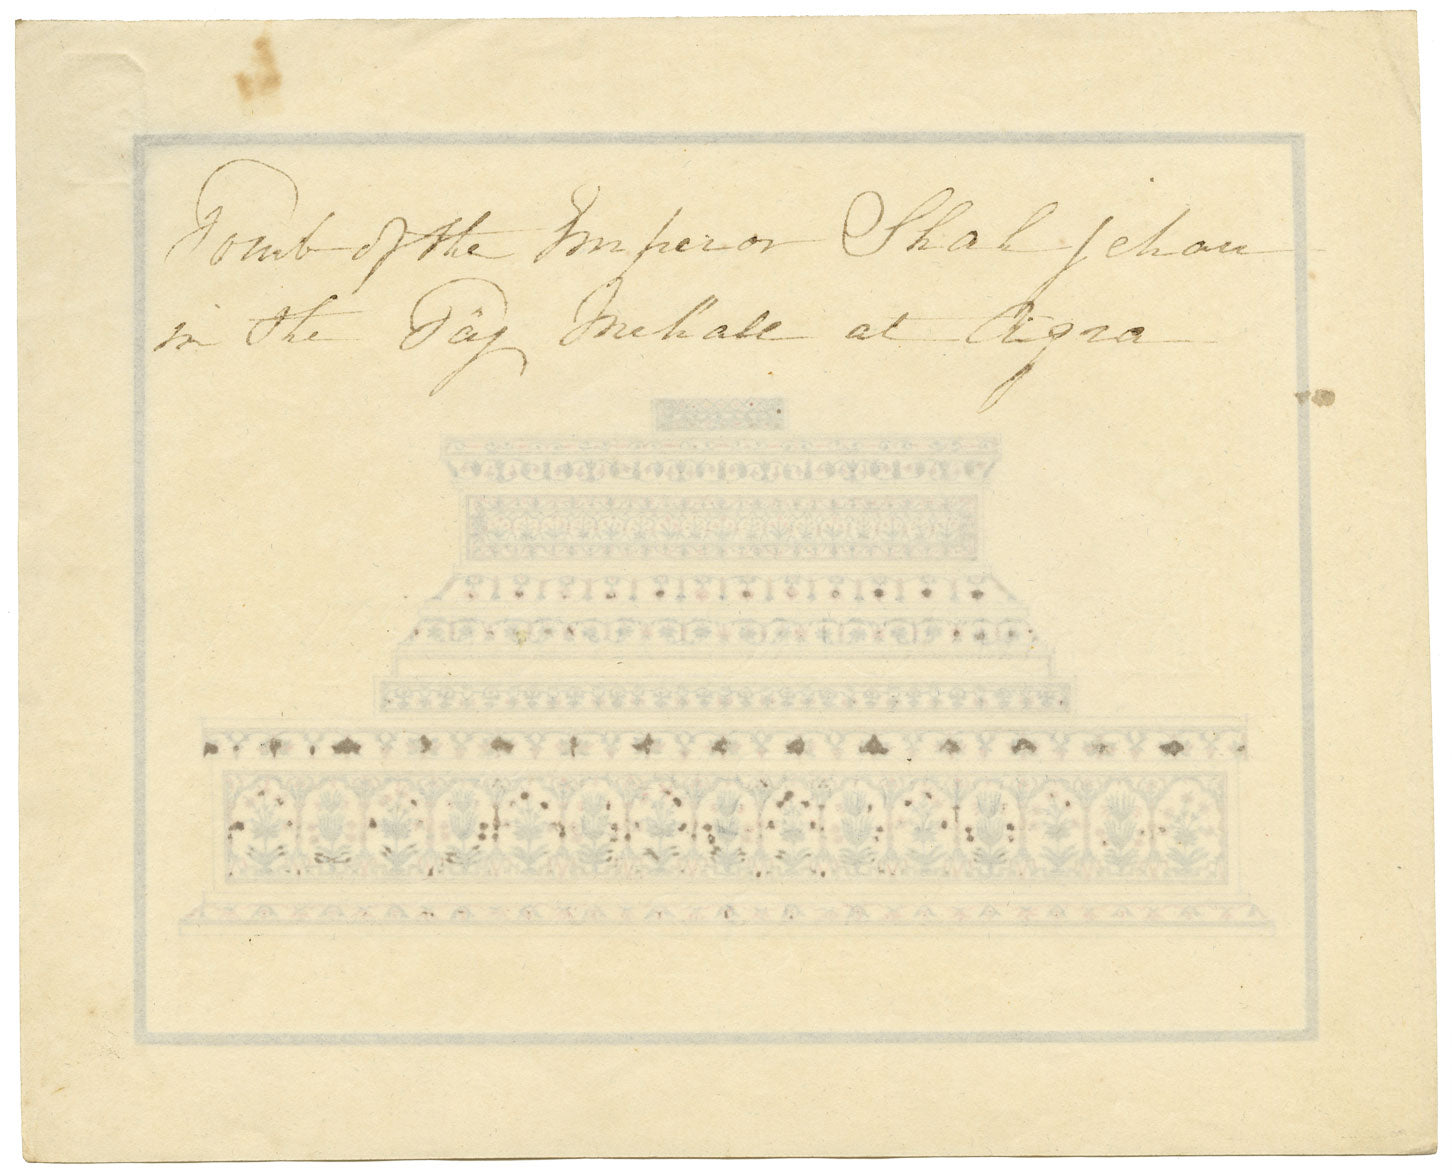 Tomb of the Emperor Shah jehan
in the Täj Mehall at Agra